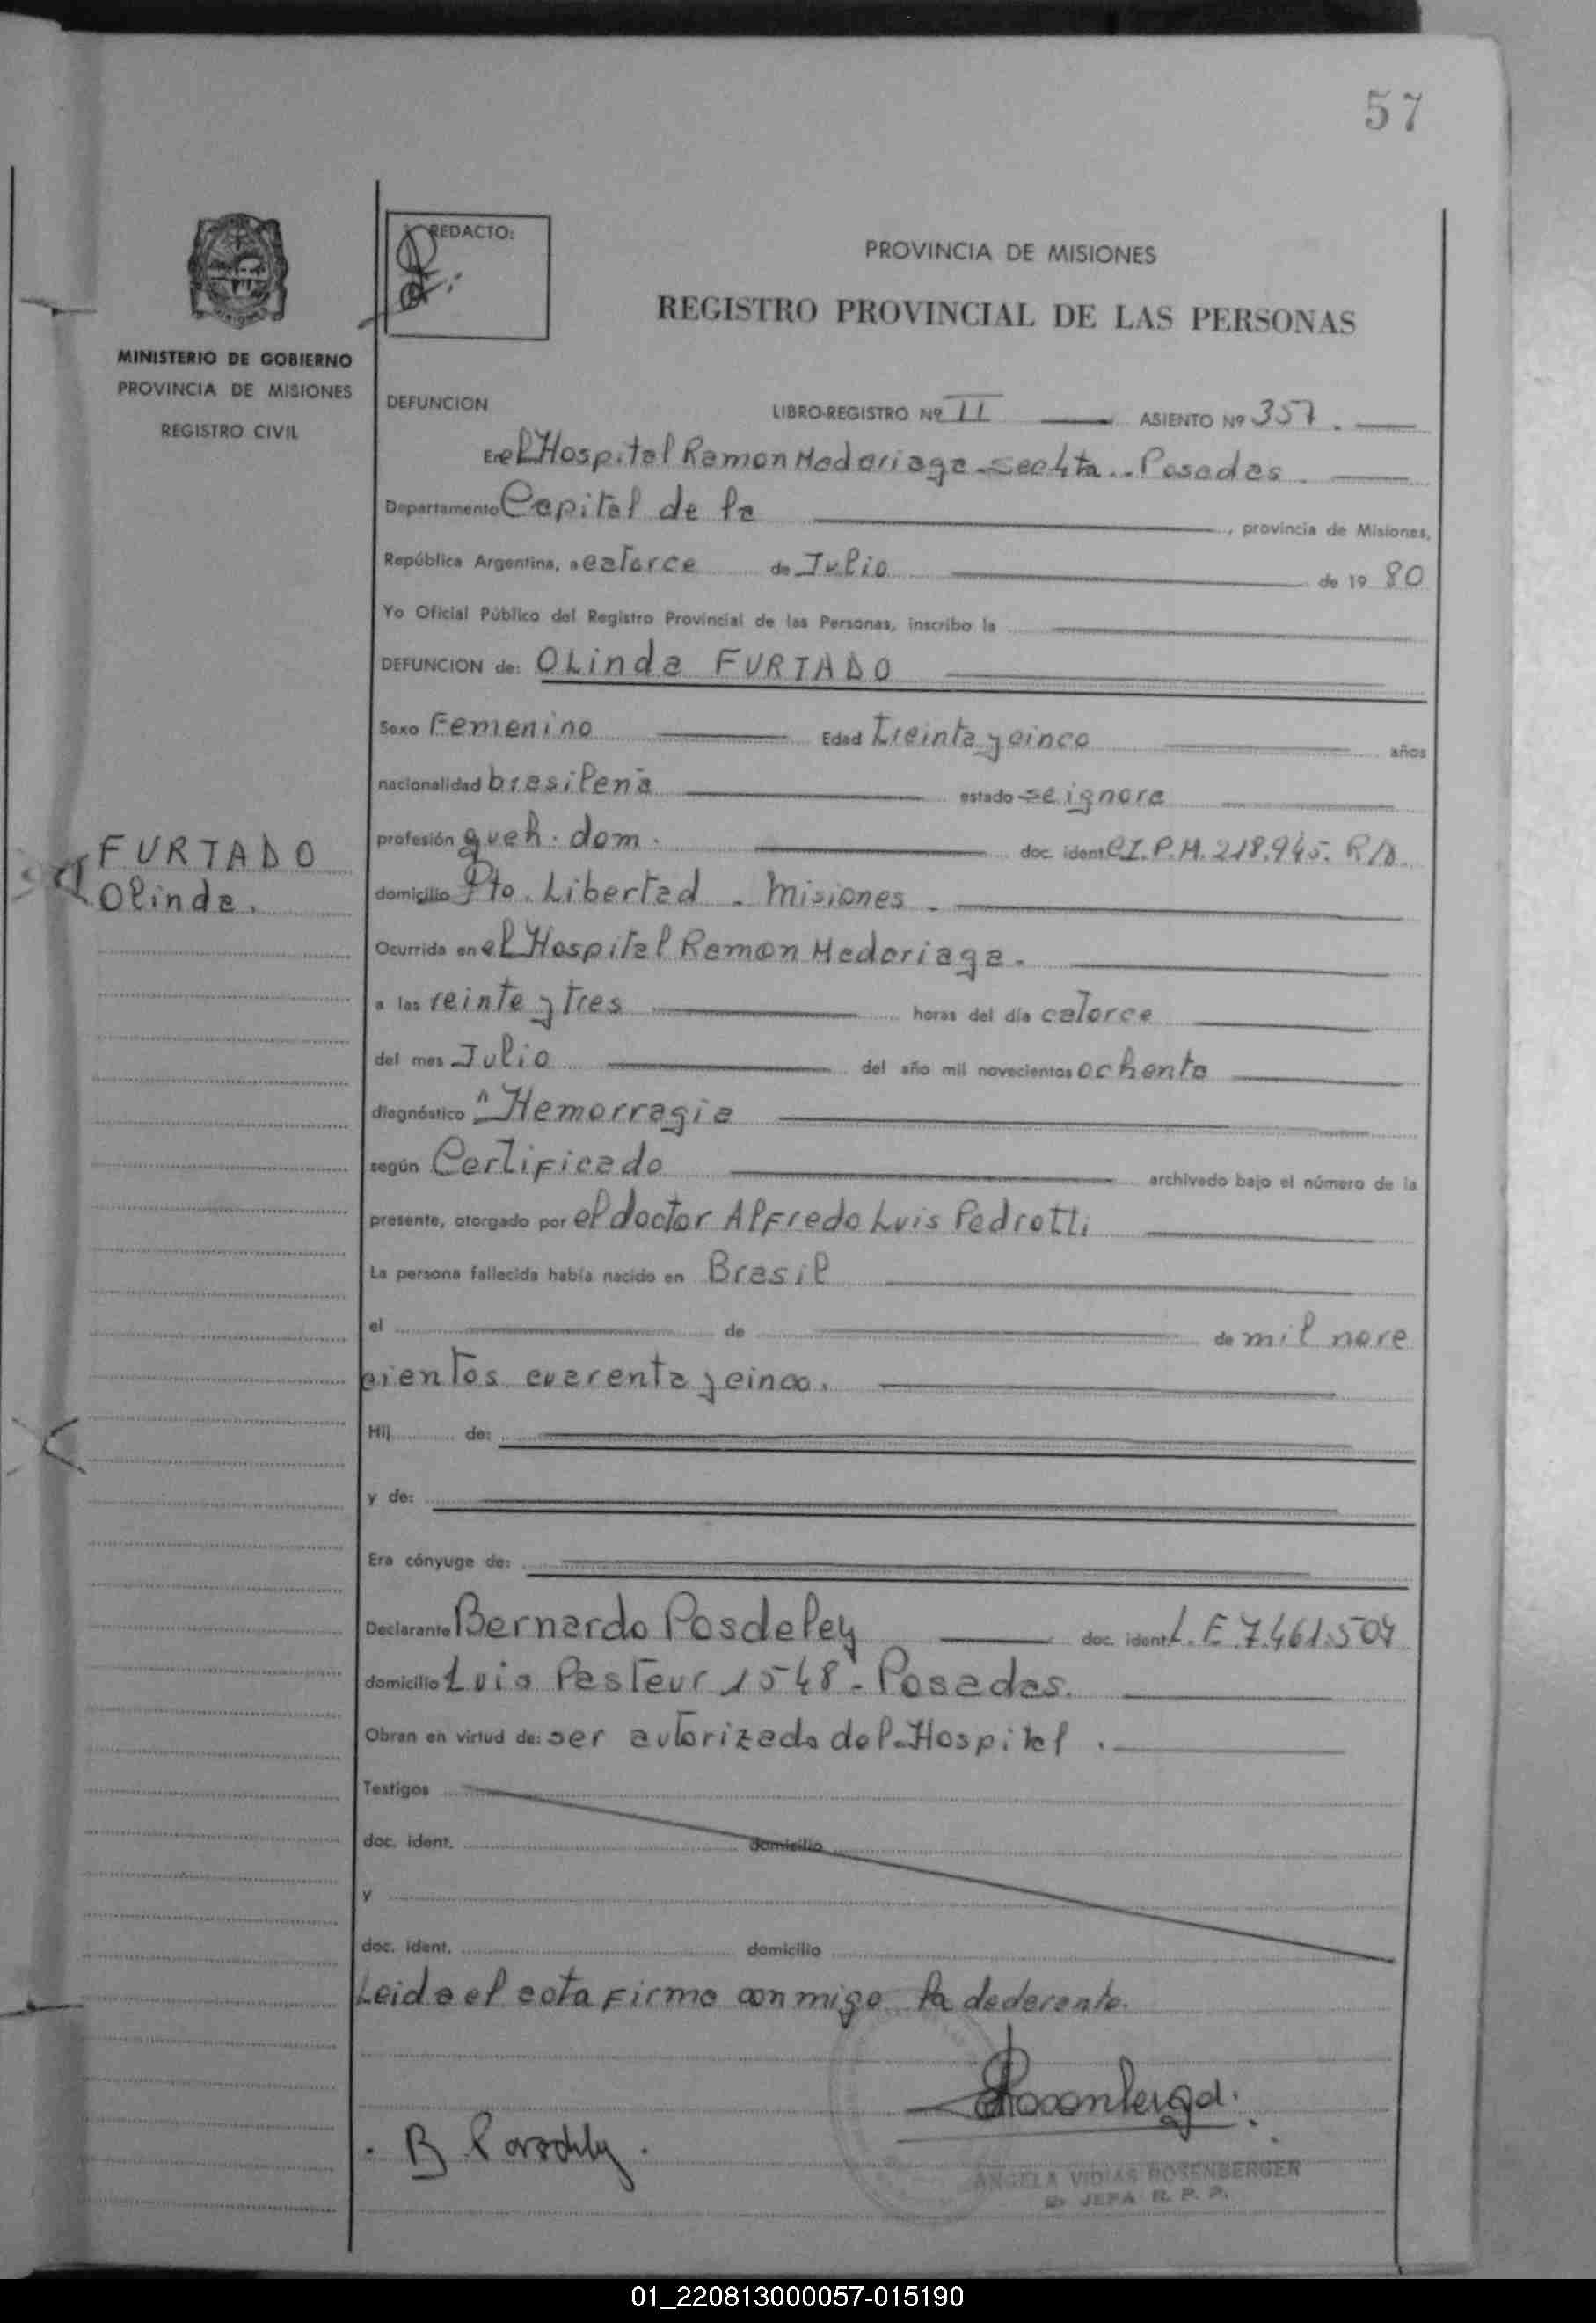 57
REDACTO:
PROVINCIA DE MISIONES
REGISTRO PROVINCIAL DE LAS PERSONAS
MINISTERIO DE GOBIERNO
PROVINCIA DE MISIONES
REGISTRO CIVIL
DEFUNCION LIBRO-REGISTRO Nº II ASIENTO Nº 357.
En el Hospital Ramon Madariaga - Posadas.
Departamento Capital de la , provincia de Misiones,
República Argentina, a catorce de Julio de 19 80
Yo Oficial Público del Registro Provincial de las Personas, inscribo la
DEFUNCION de: OLinda FURTADO
Sexo Femenino Edad treinta y cinco años
nacionalidad brasileña estado se ignora
profesión queh. dom. doc. ident C.I.P.M. 218.945. R/D.
FURTADO
Olinda.
domicilio Pto. Libertad - Misiones.
Ocurrida en el Hospital Ramon Madariaga.
a las veinte y tres horas del día catorce
del mes Julio del año mil novecientos ochenta
diagnóstico "Hemorragia
según Certificado archivado bajo el número de la
presente, otorgado por el doctor Alfredo Luis Pedrotti
La persona fallecida había nacido en Brasil
el de de mil nove
cientos cuarenta y cinco.
Hij de:
y de:
Era cónyuge de:
Declarante Bernardo Posdeley doc. ident L.E 7.461.504
domicilio Luis Pasteur 1548 - Posadas.
Obran en virtud de: ser autorizado del Hospital.
Testigos
doc. ident. domicilio
y
doc. ident. domicilio
Leida el acta firma conmigo la declarante.
ANGELA VIDIAS ROSENBERGER
JEFA R. P. P.
01_220813000057-015190